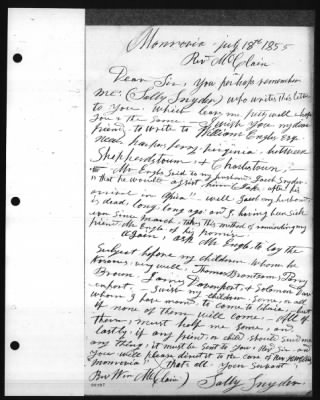 Monrovia July 18th 1855
Revd McClain
Dear Sir, You perhaps remember
me: (Sally Snyder) who writes this letter
to You which leaves me pretty well & hope
You & the same I wish you my dear
friend, to write to William Engles Esqr
near harpers ferry virginia between
Shepherdstown & Charlstown,
Mr Engle Said to my husband Jacob Snyder
that he would assist him & take after his
arrival in Africa" well Jacob my husband
is dead, long long ago and I having been Sick
ever Since March take this method of reminding my
friend Mr Engle of his promise
Again, ask Mr Engle to lay the
Subject before my children whom he
knows, very well, Thomas Brantram, Parry
Brown Fanny Davenport, & Solomon Dav
enport, I wish my children Some, or all
whom I has named to come to Liberia but
if none of them will come all of
them, must help me Some, and
lastly, if any friend or child should Send me
any thing; it must be Sent to You, dear Sir and
You will please direct it to the care of
Monrovia that's all, your Servant
Rev Wm McClain) Sally Snyder